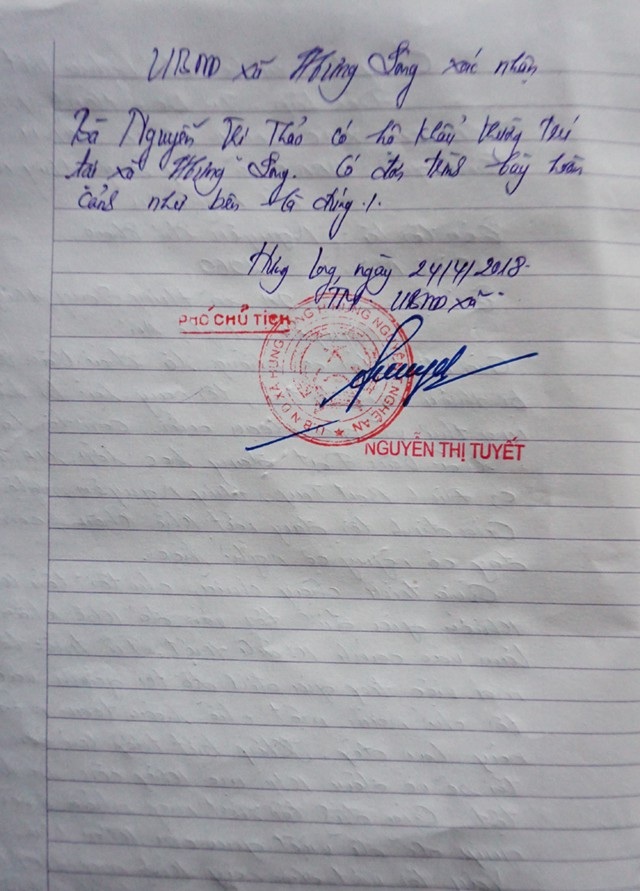 UBND xã Hưng Long xác nhận
Bà Nguyễn Thị Thảo có hộ khẩu thường trú
tại xã Hưng Long. Có đơn trình bày hoàn
cảnh như bên là đúng./.
Hưng Long, ngày 24/4/2018.
TM UBND xã
PHÓ CHỦ TỊCH
U.B.N.D XÃ HƯNG LONG H. HƯNG NGUYÊN T. NGHỆ AN
NGUYỄN THỊ TUYẾT